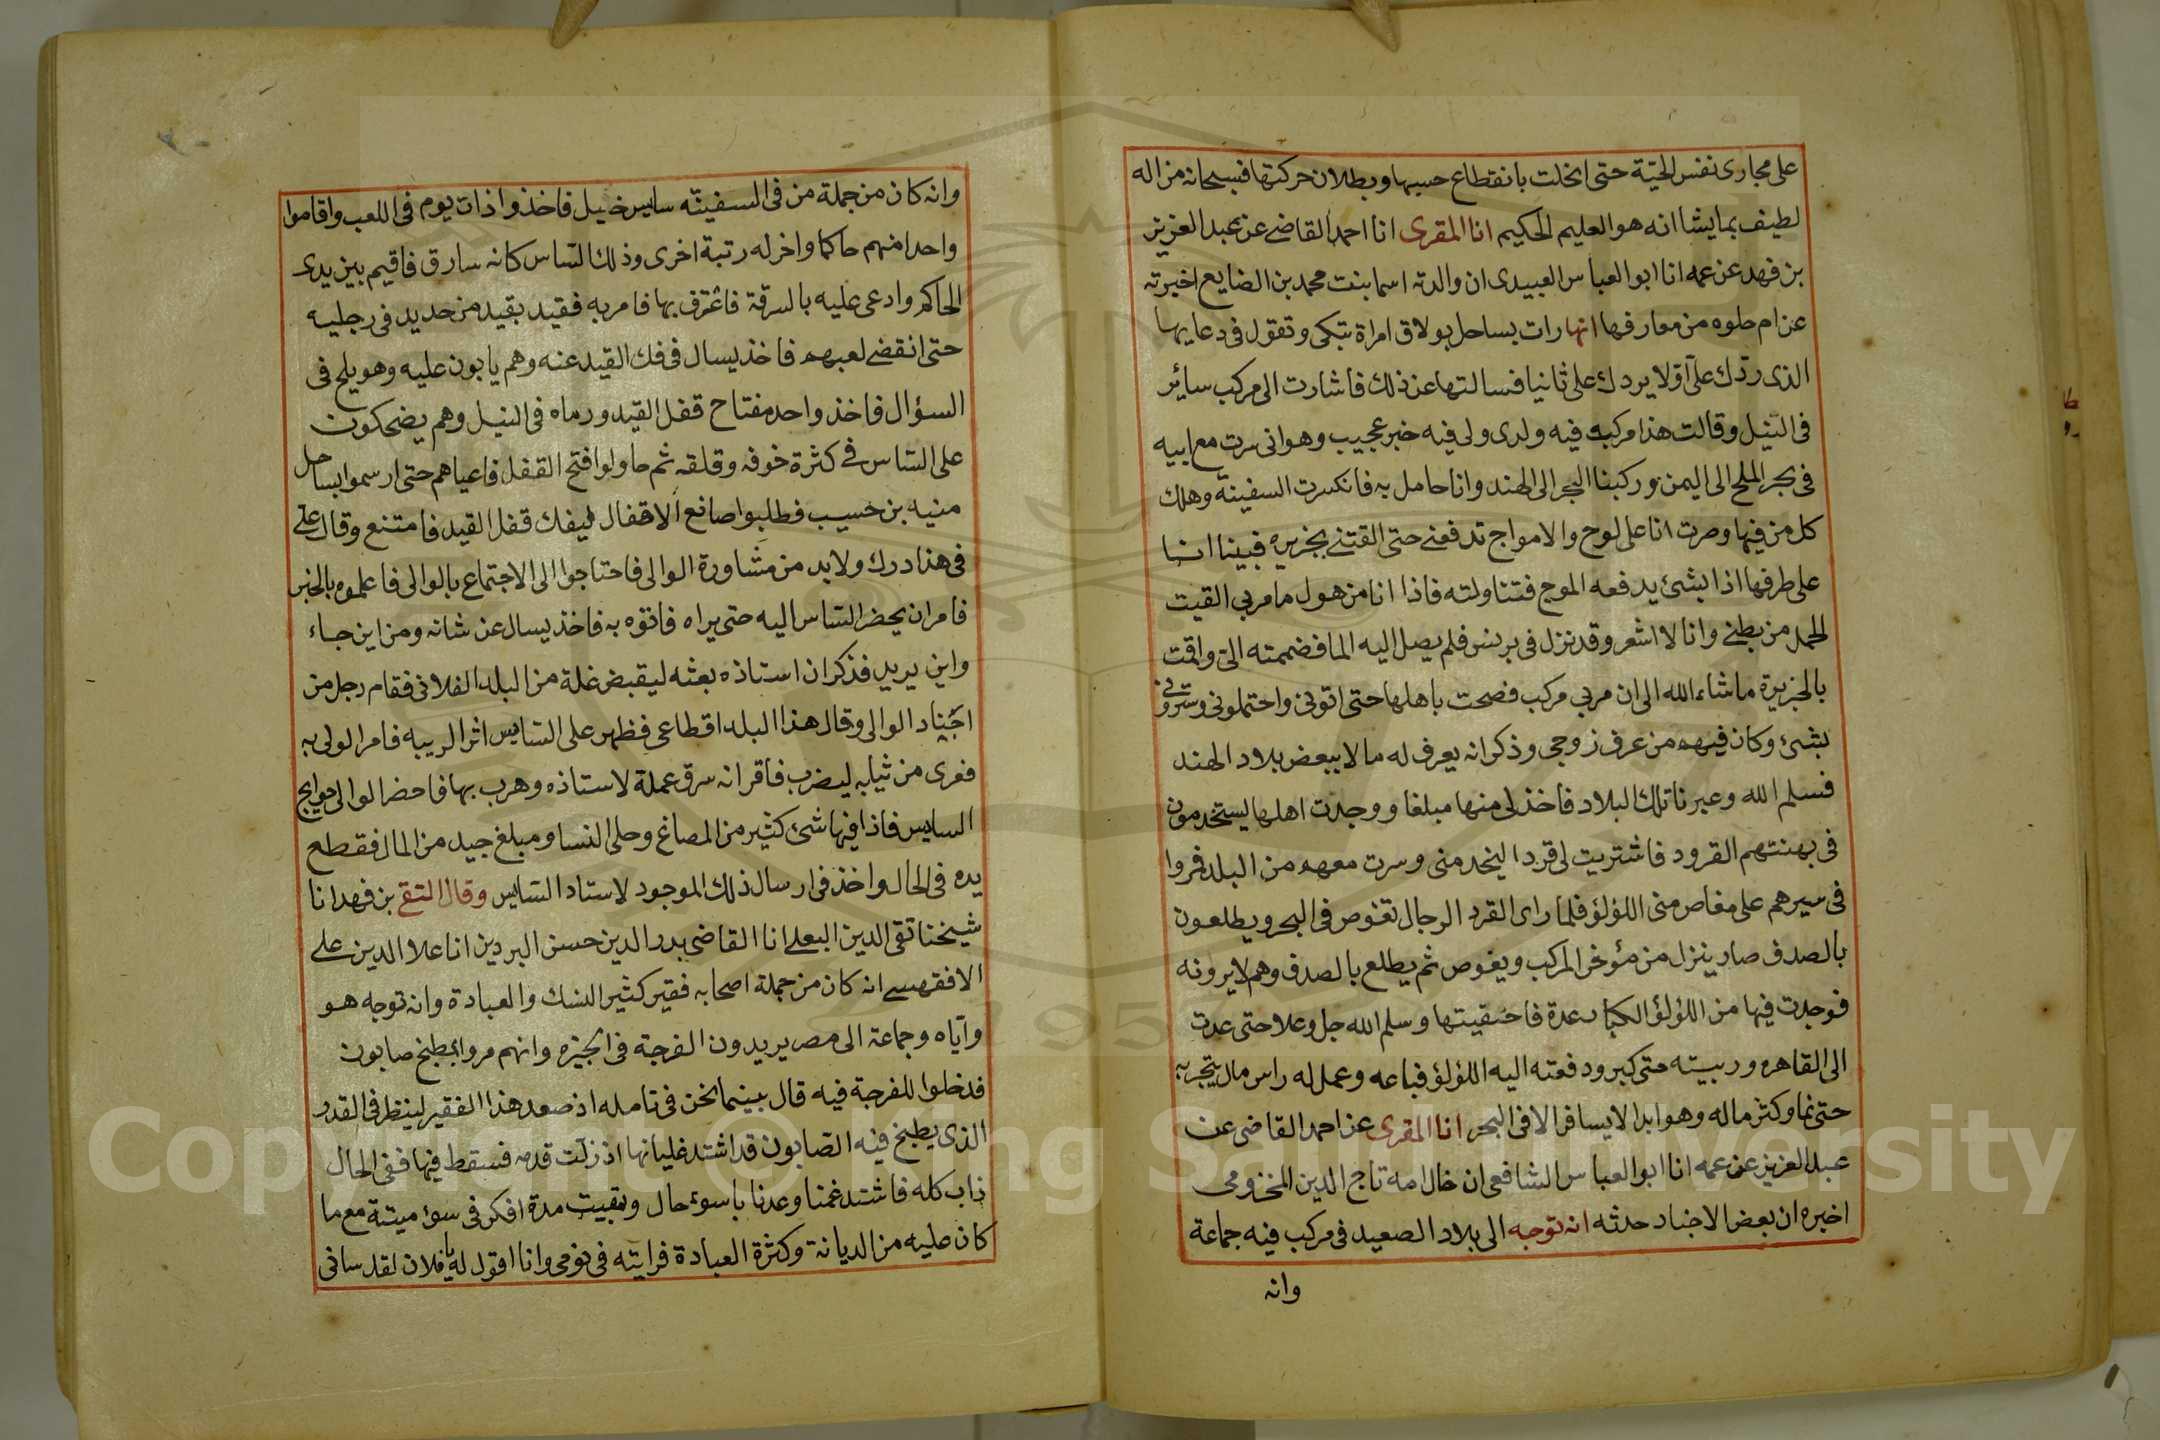 على مجارى نفس الحية حتى انخلت بانقطاع حسها وبطلان حركتها فسبحانه من اله
لطيف بما يشا انه هو العليم الحكيم انا المقرى انا احمد القاضى عن عبد العزيز
بن فهد عن عمه انا ابو العباس العبيدى ان والدته اسما بنت محمد بن الضايع اخبرته
عن ام حلوه من معارفها انها رات بساحل بولاق امراة تبكى وتقول فى دعايها
الذى ردك على آولا يردك على ثانيا فسالتها عن ذلك فاشارت الى مركب سائر
فى النيل وقالت هذا مركب فيه ولدى ولى فيه خبر عجيب وهو انى سرت مع ابيه
فى بحر الملح الى اليمن وركبنا البحر الى الهند وانا حامل به فانكسرت السفينة وهلك
كل من فيها وصرت انا على لوح والامواج تدفعنى حتى القتنى بجزيره فبينا انا
على طرفها اذا بشئ يدفعه الموج فتناولته فاذا انا من هول ما مر بى القيت
الحمل من بطنى وانا لا اشعر وقد نزل فى برنس فلم يصل اليه الما فضممته الى واقمت
بالجزيرة ما شاء الله الى ان مر بى مركب فصحت باهلها حتى اتونى واحتملونى وسترونى
بشئ وكان فيهم من عرف زوجى وذكر انه يعرف له مالا ببعض بلاد الهند
فسلم الله وعبرنا تلك البلاد فاخذ لى منها مبلغا ووجدت اهلها يستخدمون
فى بهنتهم القرود فاشتريت لى قردا ليخدمنى وسرت معهم من البلد فمروا
فى سيرهم على مغاص منى اللؤلؤ فلما راى القرد الرجال تغوص فى البحر ويطلعون
بالصدف صار ينزل من مؤخر المركب ويغوص ثم يطلع بالصدف وهم لا يرونه
فوجدت فيها من اللؤلؤ الكبار عدة فاخفيتها وسلم الله جل وعلا حتى عدت
الى القاهره وربيته حتى كبر ودفعته اليه اللؤلؤ فباعه وعمل له راس مال يتجر به
حتى نما وكثر ماله وهو ابدا لا يسافر الا فى البحر انا المقرى عن احمد القاضى عن
عبد العزيز عن عمه انا ابو العباس الشافعى ان خال امه تاج الدين المخزومى
اخبره ان بعض الاجناد حدثه انه توجه الى بلاد الصعيد فى مركب فيه جماعة
وانه
وانه كان من جملة من فى السفينة سايس خيل فاخذوا ذات يوم فى اللعب واقاموا
واحدا منهم حاكما واخر له رتبة اخرى وذلك الساس كانه سارق فاقيم بين يدى
الحاكم وادعى عليه بالسرقة فاعترف بها فامر به فقيد بقيد من حديد فى رجليه
حتى انقضى لعبهم فاخذ يسال فى فك القيد عنه وهم يابون عليه وهو يلح فى
السؤال فاخذ واحد مفتاح قفل القيد ورماه فى النيل وهم يضحكون
على الساس فى كثرة خوفه وقلقه ثم حاولوا فتح القفل فاعياهم حتى ارسموا بساحل
منيه بن خسيب فطلبوا صانع الاقفال ليفك قفل القيد فامتنع وقال على
فى هذا درك ولا بد من مشاورة الوالى فاحتاجوا الى الاجتماع بالوالى فاعلموه بالخبر
فامر ان يحضر الساس اليه حتى يراه فاتوه به فاخذ يسال عن شانه ومن اين جاء
واين يريد فذكر ان استاذه بعثه ليقبض غلة من البلد الفلانى فقام رجل من
اجناد الوالى وقال هذا البلد اقطاعى فظهر على السايس اثر الريبه فامر الولى به
فعرى من ثيابه ليضرب فاقر انه سرق عملة لاستاذه وهرب بها فاحضر الوالى حوايج
السايس فاذا فيها شئ كثير من المصاغ وحلى النسا ومبلغ جيد من المال فقطع
يده فى الحال واخذ فى ارسال ذلك الموجود لاستاد السايس وقال التقى بن فهد انا
شيخنا تقى الدين البعلى انا القاضى بدر الدين حسن البردين انا علا الدين على
الاقفهسى انه كان من جملة اصحابه فقير كثير النسك والعبادة وانه توجه هو
واياه وجماعة الى مصر يريدون الفرجة فى الجيزه وانهم مروا بمطبخ صابون
فدخلوا للفرجة فيه قال بينما نحن فى تامله اذ صعد هذا الفقير لينظر فى القدر
الذى يطبخ فيه الصابون قد اشتد غليانها اذ زلت قدمه فسقط فيها ففى الحال
ذاب كله فاشتد غمنا وعدنا باسوء حال وبقيت مدة افكر فى سوء ميتة مع ما
كان عليه من الديانة وكثرة العبادة فرايته فى نومى وانا اقول له يا فلان لقد سانى
Copyright © King Saud University